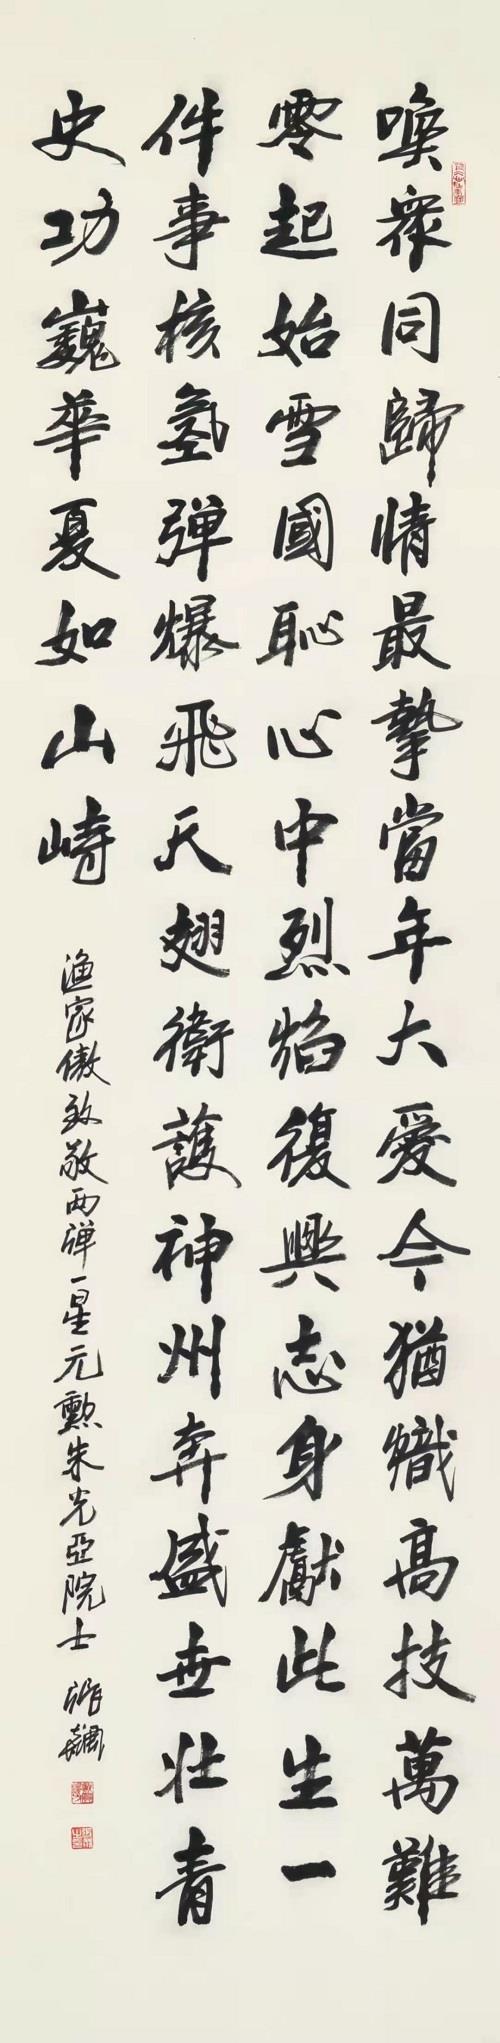 喚衆同歸情最摯當年大愛今猶熾高技萬難
零起始雪國恥心中烈焰復興志身獻此生一
件事核氢弹爆飛天翅衛護神州奔盛世壯青
史功巍華夏如山峙
渔家傲致敬两弹一星元勲朱光亞院士